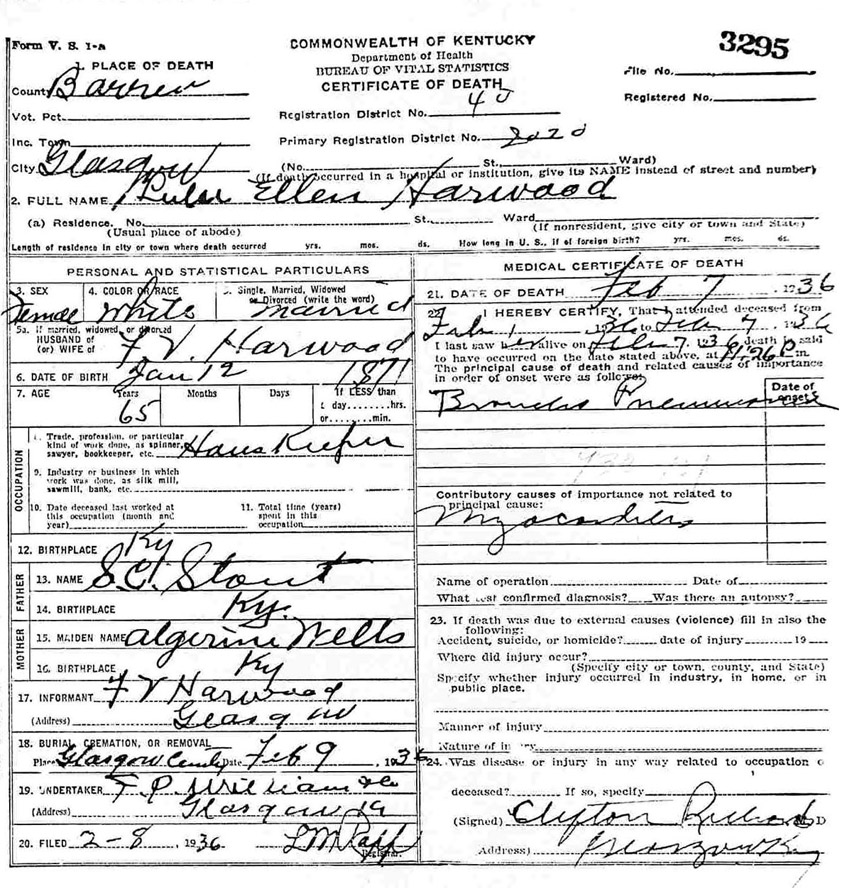 Form V. S. 1-a
COMMONWEALTH OF KENTUCKY
Department of Health
BUREAU OF VITAL STATISTICS
CERTIFICATE OF DEATH
3295
File No.
Registered No.
1. PLACE OF DEATH
County Barren
Vot. Pct.
Inc. Town
City Glasgow
Registration District No. 40
Primary Registration District No. 2020
(No. St. Ward)
(If death occurred in a hospital or institution, give its NAME instead of street and number)
2. FULL NAME Lulu Ellen Harwood
(a) Residence. No. St. Ward
(Usual place of abode) (If nonresident, give city or town and State)
Length of residence in city or town where death occurred yrs. mos. ds. How long in U. S., if of foreign birth? yrs. mos. ds.
PERSONAL AND STATISTICAL PARTICULARS
3. SEX 4. COLOR OR RACE 5. Single, Married, Widowed or Divorced (write the word)
Female White Married
5a. If married, widowed, or divorced
HUSBAND of
(or) WIFE of F. V. Harwood
6. DATE OF BIRTH Jan 12 1871
7. AGE Years Months Days If LESS than
65 1 day........hrs.
or........min.
OCCUPATION
8. Trade, profession, or particular
kind of work done, as spinner,
sawyer, bookkeeper, etc. Hous Keeper
9. Industry or business in which
work was done, as silk mill,
sawmill, bank, etc.
10. Date deceased last worked at
this occupation (month and
year)
11. Total time (years)
spent in this
occupation
12. BIRTHPLACE Ky
FATHER
13. NAME S. C. Stout
14. BIRTHPLACE Ky.
MOTHER
15. MAIDEN NAME Algerine Wells
16. BIRTHPLACE Ky
17. INFORMANT F V Harwood
(Address) Glasgow
18. BURIAL, CREMATION, OR REMOVAL
Place Glasgow Date Feb 9, 1936
19. UNDERTAKER F. P.
(Address) Glasgow Ky
20. FILED 2-8, 1936
Registrar.
MEDICAL CERTIFICATE OF DEATH
21. DATE OF DEATH Feb 7 1936
22. I HEREBY CERTIFY, That I attended deceased from
Feb 1 1936 to Feb 7, 1936
I last saw alive on Feb 7, 1936, death is said
to have occurred on the date stated above, at 11:26 p m.
The principal cause of death and related causes of importance
in order of onset were as follows:
Date of onset
Broncho Pneumonia
Contributory causes of importance not related to
principal cause:
Myocarditis
Name of operation Date of
What test confirmed diagnosis? Was there an autopsy?
23. If death was due to external causes (violence) fill in also the
following:
Accident, suicide, or homicide? date of injury 19
Where did injury occur?
(Specify city or town, county, and State)
Specify whether injury occurred in industry, in home, or in
public place.
Manner of injury
Nature of injury
24. Was disease or injury in any way related to occupation o
deceased? If so, specify
(Signed) Clifton Richards M D
Address) Glasgow Ky